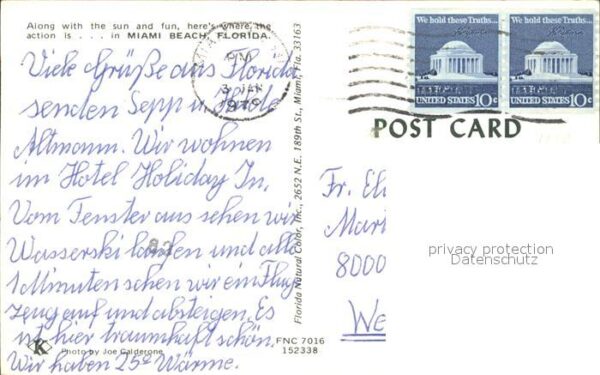 Along with the sun and fun, here's where the
action is . . . in MIAMI BEACH, FLORIDA.
Viele Grüße aus Florida
senden Sepp u.
Altmann. Wir wohnen
im Hotel Holiday In,
Vom Fenster aus sehen wir
Wasserski laufen und alle
1 Minuten sehen wir ein Flug
zeug auf und absteigen. Es
ist hier traumhaft schön.
Wir haben 25º Wärme.
K
Photo by Joe Calderone
FNC 7016
152338
Florida Natural Color, Inc., 2652 N.E. 189th St., Miami, Fla. 33163
PM
We hold these Truths...
UNITED STATES 10c
We hold these Truths...
UNITED STATES 10c
POST CARD
Fr.
8000
We
privacy protection
Datenschutz